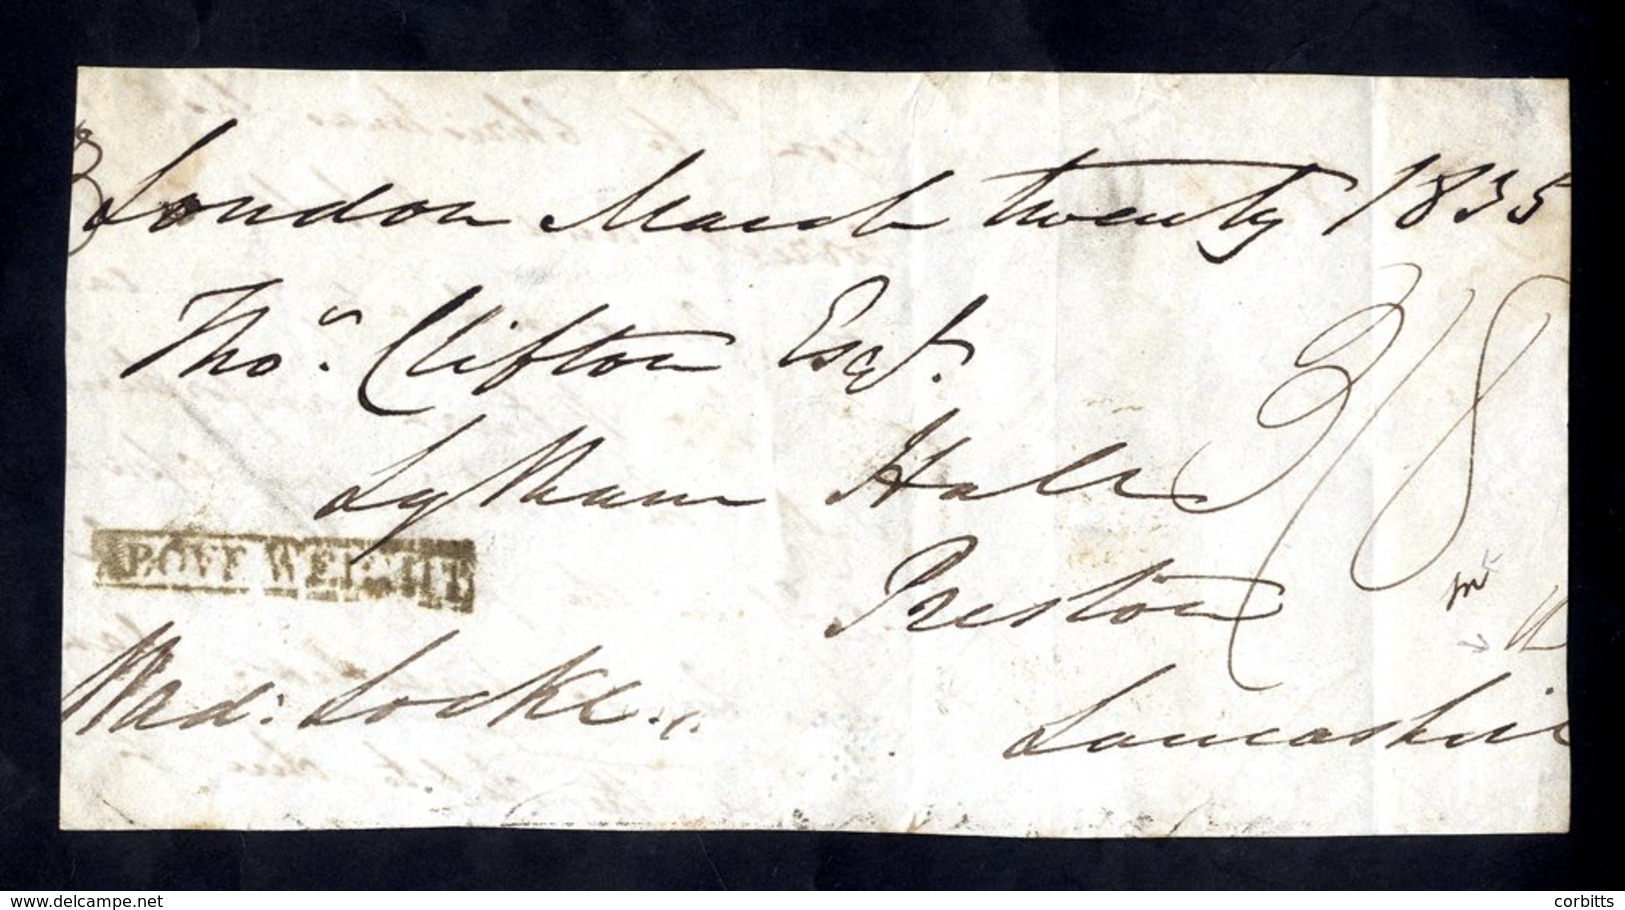 London March twenty 1835
Thos. Clifton Esqr.
Lytham Hall 3/8
Preston
ABOVE WEIGHT
Lancashire
delcampe.net
corbitts